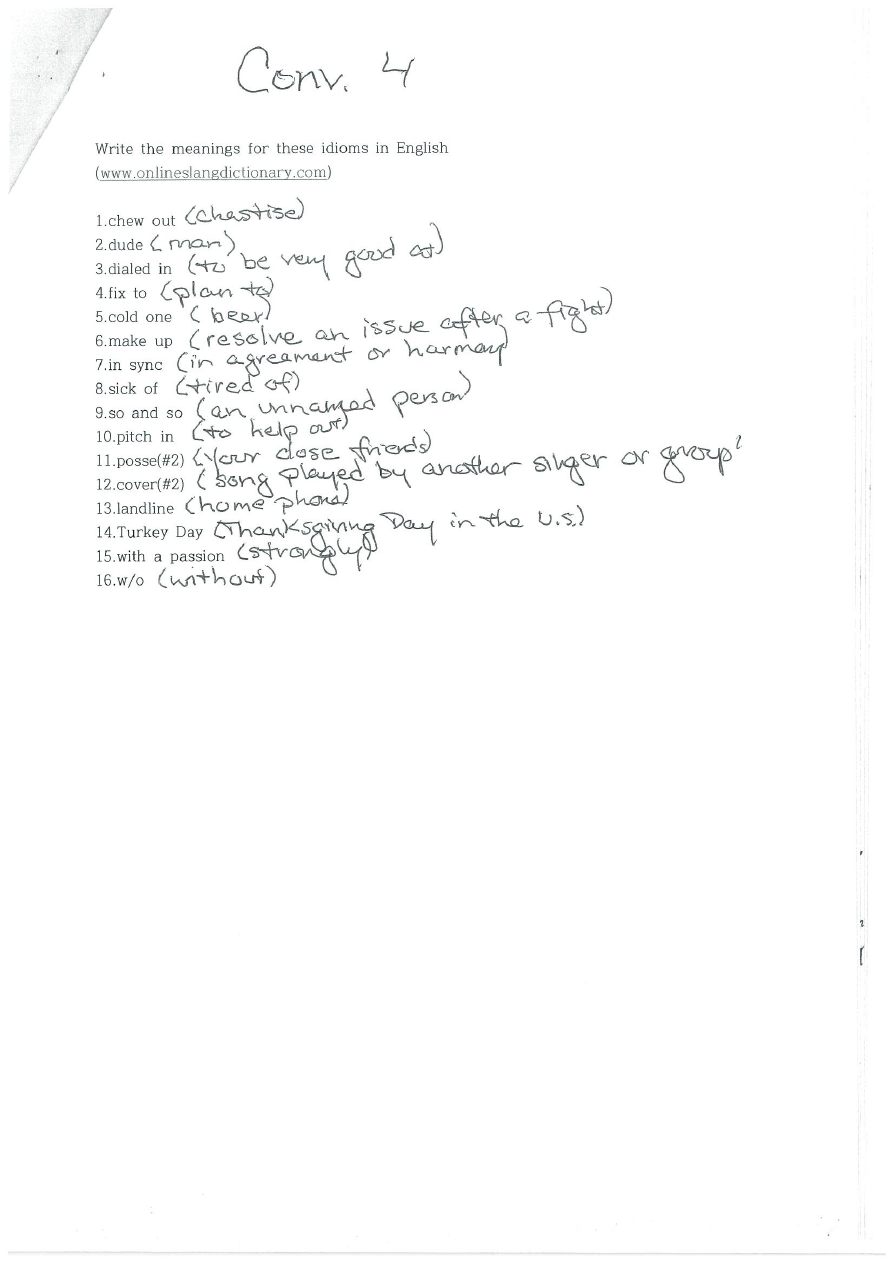 Conv. 4
Write the meanings for these idioms in English
(www.onlineslangdictionary.com)
1.chew out (chastise)
2.dude (man)
3.dialed in (to be very good at)
4.fix to (plan to)
5.cold one (beer)
6.make up (resolve an issue after a fight)
7.in sync (in agreament or harmany)
8.sick of (tired of)
9.so and so (an unnamed person)
10.pitch in (to help out)
11.posse(#2) (your close friends)
12.cover(#2) (song played by another singer or group)
13.landline (home phone)
14.Turkey Day (Thanksgiving Day in the U.S.)
15.with a passion (strongly)
16.w/o (without)